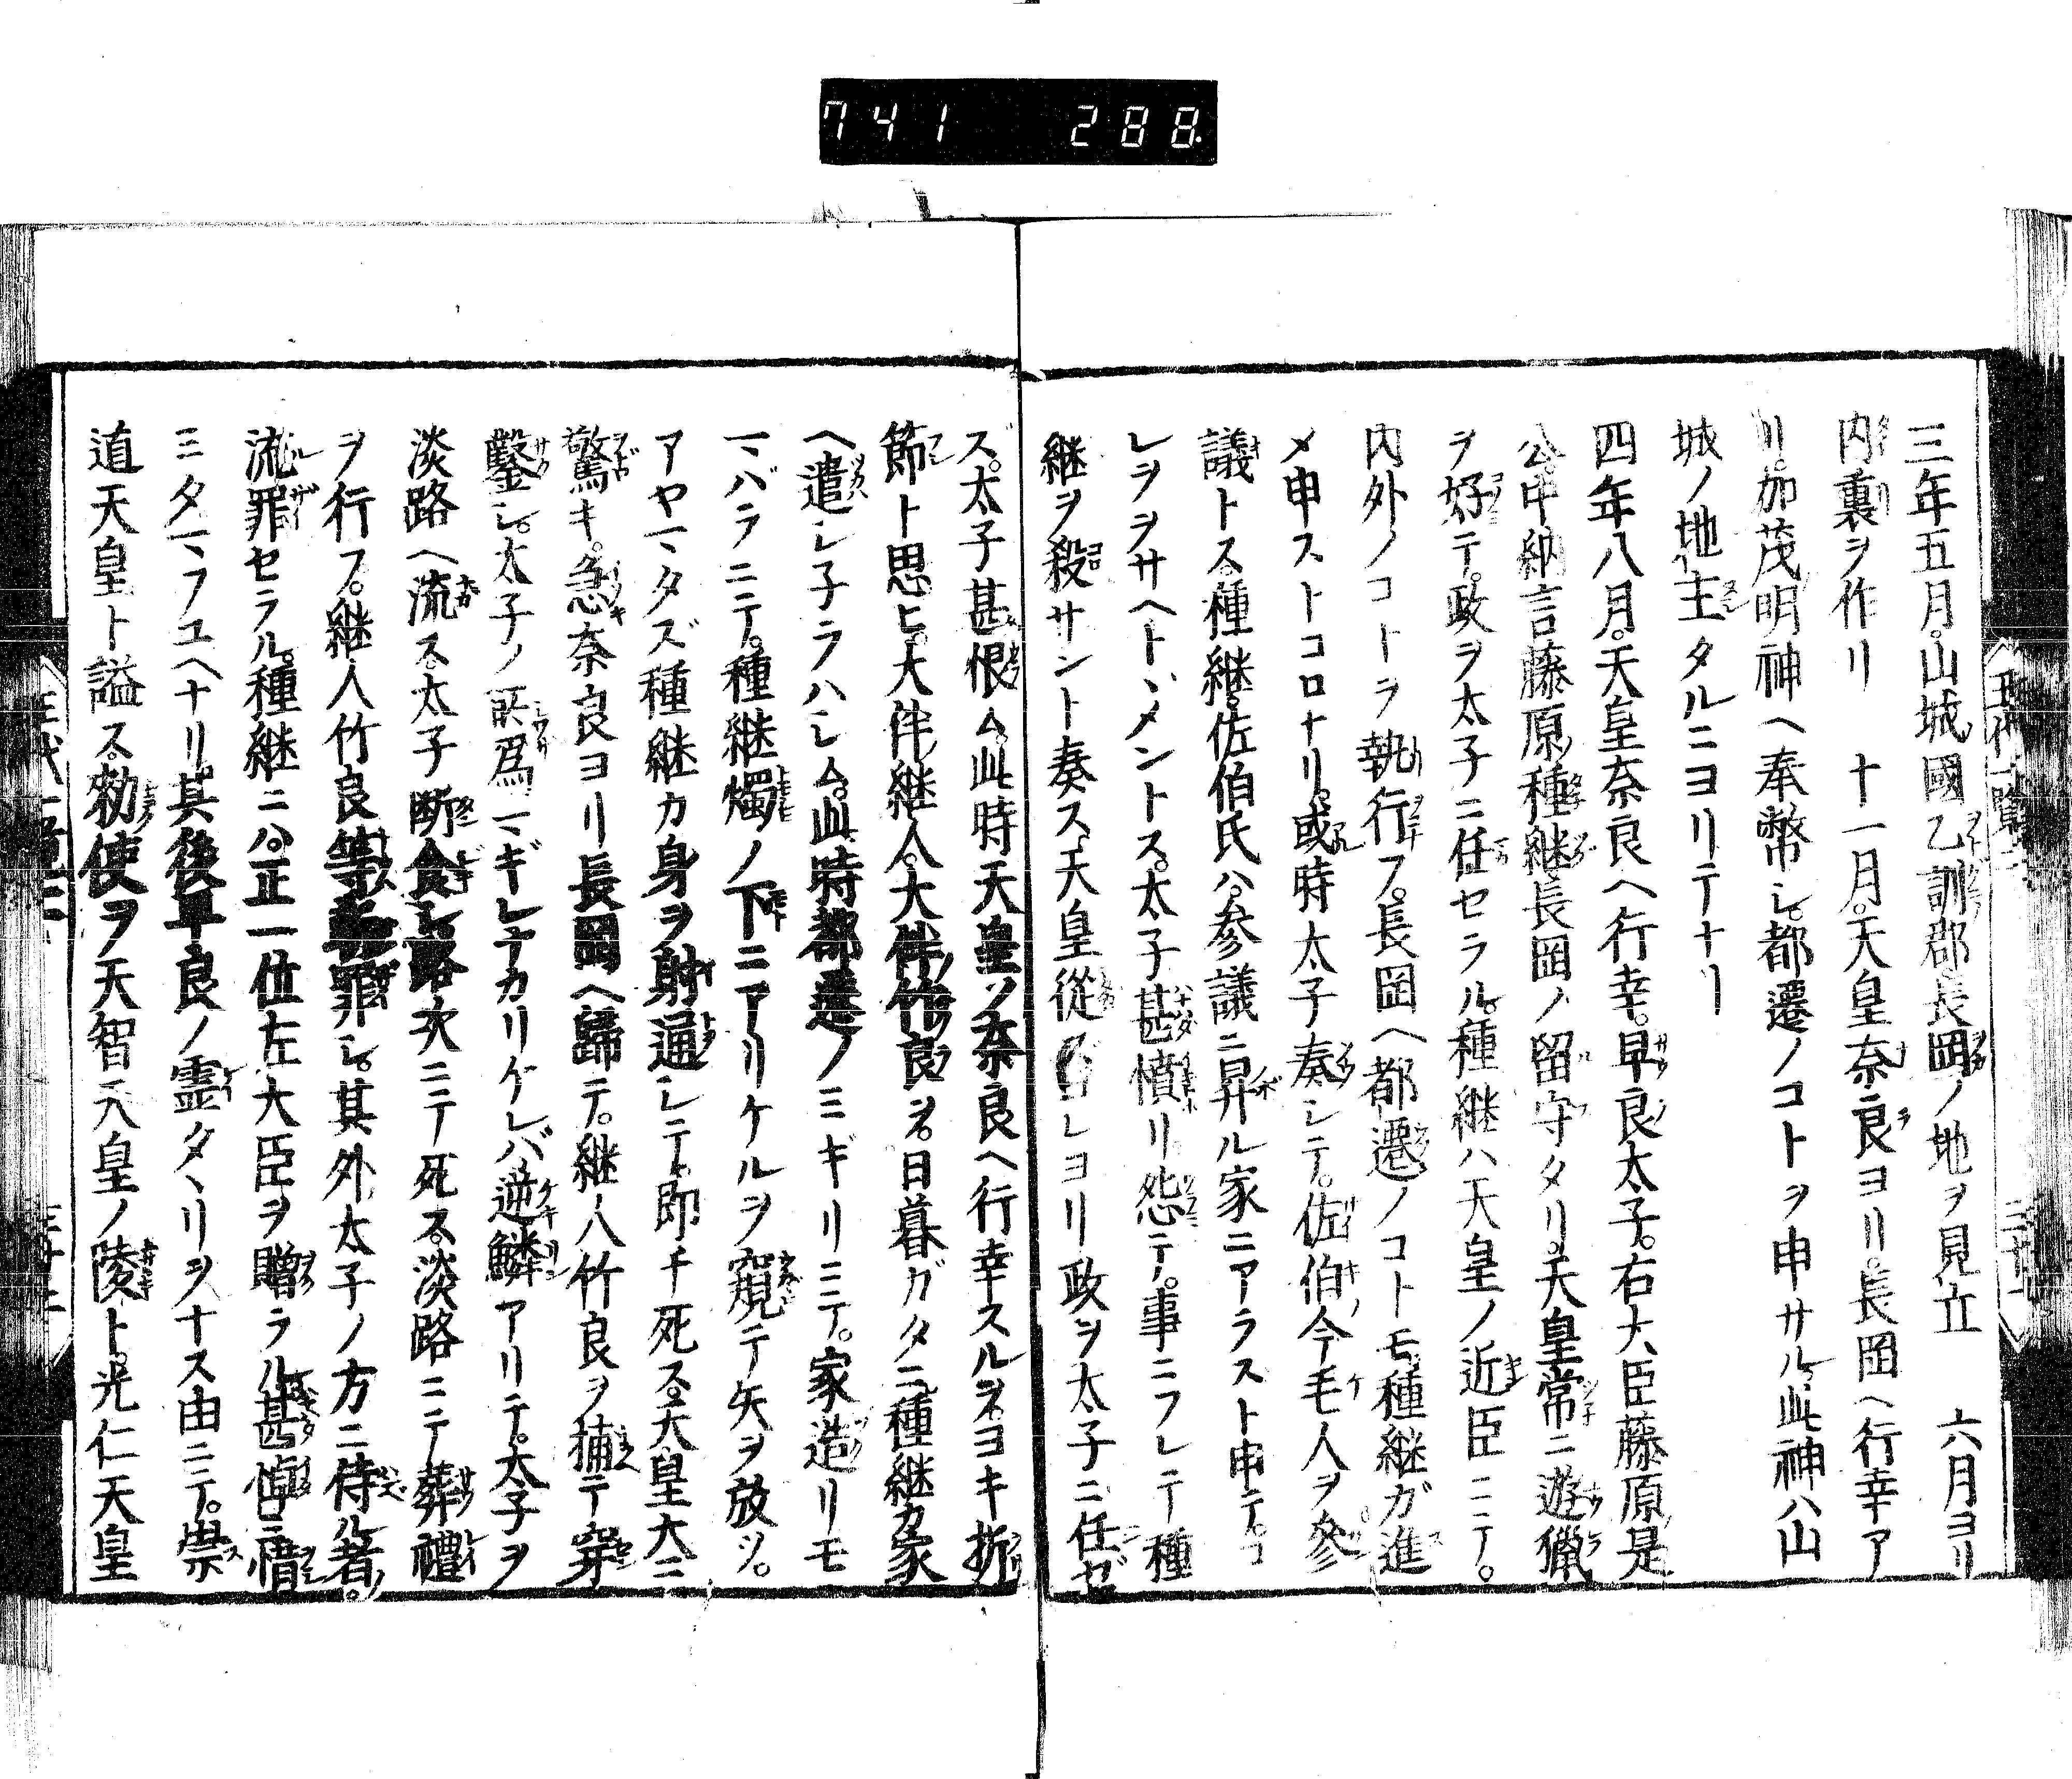 741 288
三年五月。山城國乙訓郡長岡ノ地ヲ見立 六月ヨリ
内裏ヲ作リ 十一月。天皇奈良ヨリ。長岡ヘ行幸ア
リ。加茂明神ヘ奉幣シ。都遷ノコトヲ申サル。此神ハ山
城ノ地主タルニヨリテナリ
四年八月。天皇奈良ヘ行幸。早良太子。右大臣藤原是
公。中納言藤原種継長岡ノ留守タリ。天皇常ニ遊獵
ヲ好テ。政ヲ太子ニ任セラル。種継ハ天皇ノ近臣ニテ。
内外ノコトヲ執行フ。長岡ヘ都遷ノコトモ。種継ガ進
メ申ストコロナリ。或時太子奏シテ。佐伯今毛人ヲ參
議トス。種継。佐伯氏ハ。参議ニ昇ル家ニアラスト申テ。コ
レヲヲサヘトヾメントス。太子甚憤リ怨テ。事ニフレテ種
継ヲ殺サント奏ス。天皇從レヨリ政ヲ太子ニ任ゼ
ズ。太子甚恨ム。此時天皇ノ奈良ヘ行幸スルヲ。ヨキ折
節ト思ヒ。大伴継人。大伴竹良ヲ。日暮ガタニ種継カ家
ヘ遣シ子ラハシム。此時都遷ノミギリニテ。家造リモ
マバラニテ。種継燭ノ下ニアリケルヲ窺テ矢ヲ放ツ。
アヤマタズ種継カ身ヲ射通シテ。即チ死ス。天皇大ニ
驚キ。急奈良ヨリ長岡ヘ歸テ。継人竹良ヲ捕テ穿
鑿シ。太子ノ所爲マギレナカリケレバ逆鱗アリテ。太子ヲ
淡路ヘ流ス。太子断食シ路次ニテ死ス。淡路ニテ葬禮
ヲ行フ。継人竹良等罪シ。其外太子ノ方ニ侍ル者。
流罪セラル。種継ニハ。正一位左大臣ヲ贈ラル。甚惜
ミタマフユヘナリ。其後早良ノ霊タヽリヲナス由ニテ。崇
道天皇ト謚ス。勅使ヲ天智天皇ノ陵ト。光仁天皇